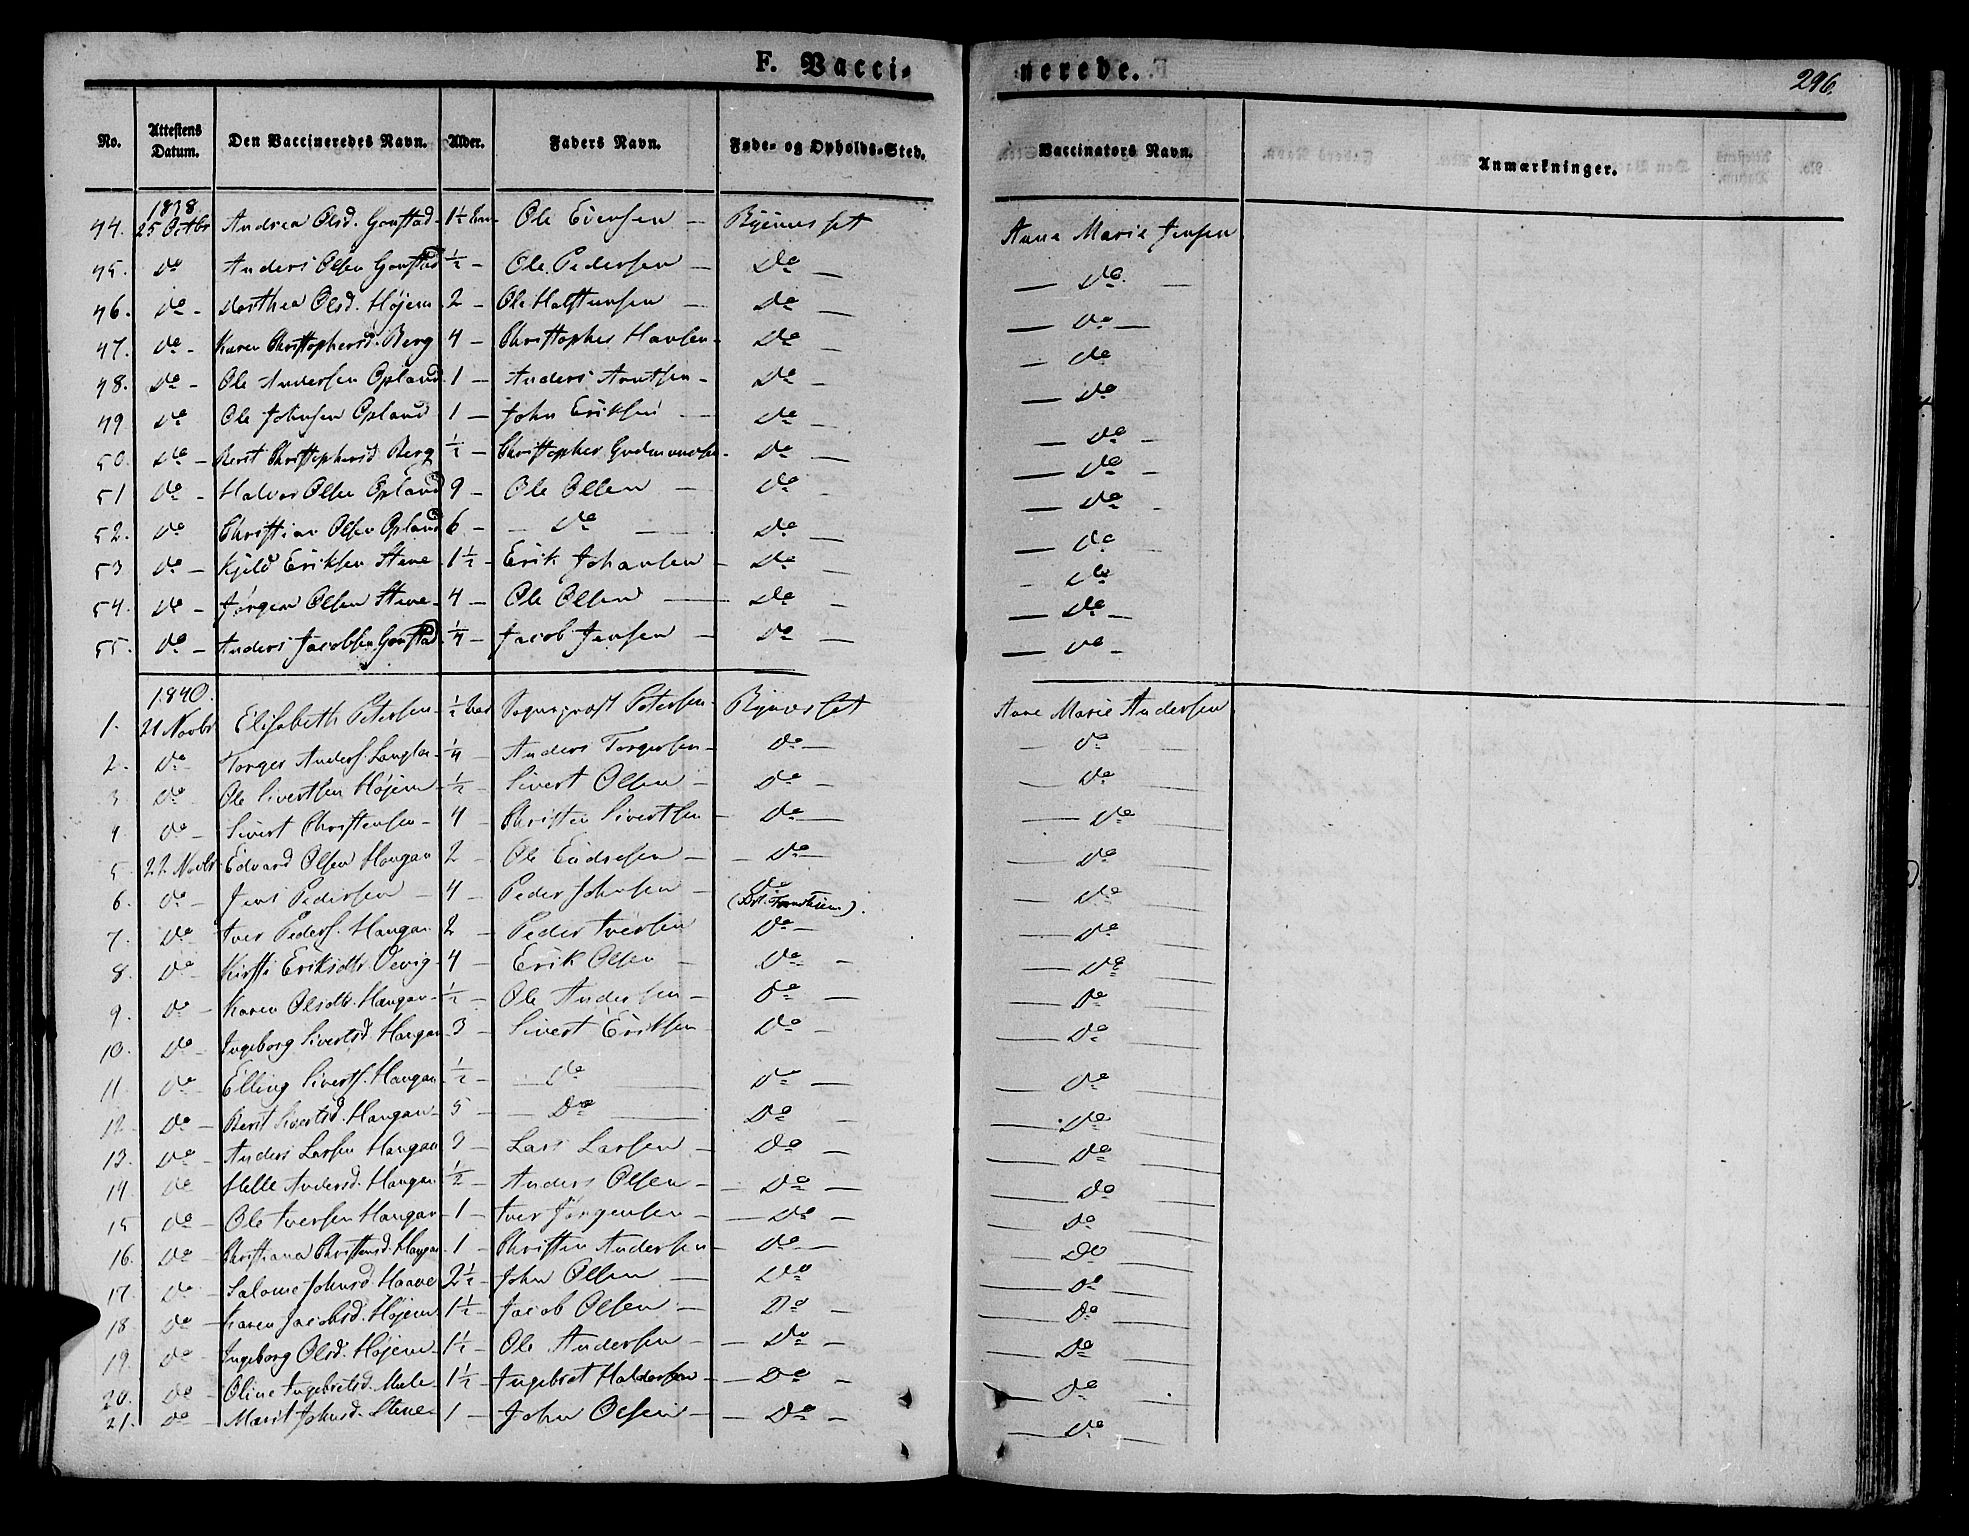 F. Vacci- nerede.
296.
No. Attestens Datum. Den Vaccineredes Navn. Alder. Faders Navn. Føde- og Opholds-Sted. Vaccinators Navn. Anmærkninger.
1838.
44. 25 Octbr Andrea Olsd. Gonstad 1½ Ole Evensen — Bynesset Anne Marie Jensen
45. Do Anders Olsen Gonstad ½ — Ole Pedersen — Do — — Do. —
46. Do - Dorthea Olsd. Højem 2 - Ole Halstensen — Do — — Do —
47. Do - Karen Christophersd. Berg 4 - Christopher Hansen - Do — — Do
48. Do - Ole Andersen Opland 1 — Anders Arntsen - Do — — Do
49 Do Ole Johnsen Opland 1 — John Eriksen — Do — — Do —
50. Do - Berit Christophersd. Berg ½ - Christopher Gudmundsen - Do — — Do —
51 Do - Halvor Olsen Opland 9 - Ole Olsen — Do - — Do —
52. Do Christian Olsen Opland 6 - — Do — Do — — Do
53 Do - Kjeld Eriksen Stene - 1½ - Erik Johansen - Do — - Do
54. Do - Jørgen Olsen Stene - 4 — Ole Olsen — Do — — Do —
55. Do - Anders Jacobsen Gonstad ¼ - Jacob Jensen — Do — — Do -
1840.
1. 21 Novbr Elisabeth Petersen - ½ Sognepræst Petersen - Bynesset Anne Marie Andersen
2. Do Torger Anders. ¼ - Anders Torgersen - Do — — Do —
3 Do Ole Sivertsen Højem ½ - Sivert Olsen — Do — — Do —
4 Do - Sivert Christensen - 4 Christen Sivertsen - Do — — Do —
5. 22 Novbr Edvard Olsen Haugan 2 - Ole Endresen — - Do — — Do —
6. Do - Jens Pedersen — 4 - Peder Johnsen — Do — Do —
(Trondhiem).
7. Do Iver Peders. Haugan 2 Peder Iversen Do — — Do —
8. Do - Kirsti Eriksdtr Oevig - 4 - Erik Olsen — Do - — Do —
9. Do - Karen Olsdtr. Haugan - ½ - Ole Andersen — Do — — Do —
10. Do - Ingeborg Sivertsd. Haugan 3 - Sivert Eriksen Do - — Do —
11 Do - Elling Siverts. Haugan ½ - — Do — Do — — Do —
12. Do - Berit Sivertsd. Haugan - 5 - — Do — Do — — Do —
13. Do - Anders Larsen Haugan 3 - Lars Larsen — Do — — Do —
14 Do Anders d. Haugan ½ - Anders Olsen - - Do — — Do —
15 Do - Ole Iversen Haugan - 1 - Iver Jørgensen - — Do — — Do —
16. Do - Christiana Christensd. Haugan 1 - Christen Andersen - Do — — Do —
17. Do - Salome Johnsd. Haave 2½ - John Olsen — Do — Do —
18 Do - Karen Jacobsd. Højem 1½ - Jacob Olsen — Do - — Do —
19. Do Ingeborg Olsd. Højem - 1½ - Ole Andersen - — Do — — Do —
20. Do - Oline Ingebretsd. Mule - 1½ - Ingebret Haldorsen - Do — — Do —
21. Do - Marit Johnsd. Stene - 1 - John Olsen - — Do - — Do —